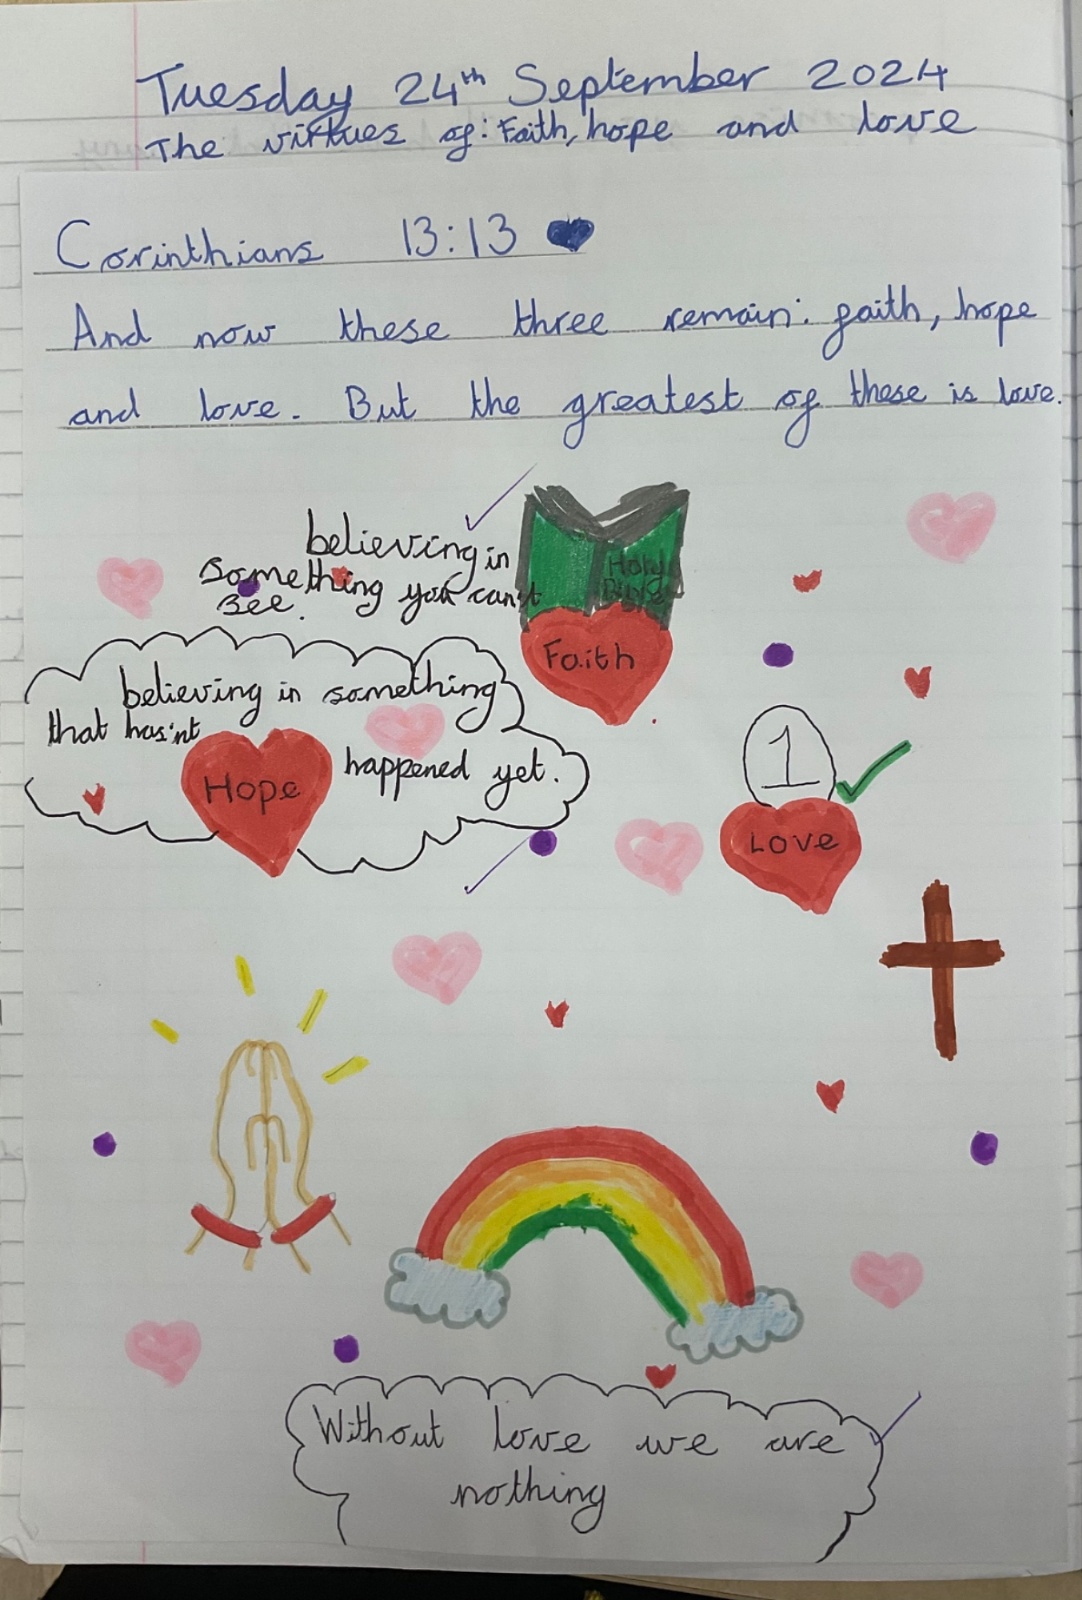 Tuesday 24th September 2024
The virtues of: Faith, hope and love
Corinthians 13:13
And now these three remain: faith, hope
and love. But the greatest of these is love.
believing in
something you can't
see.
Holy
Faith
believing in something
that has'nt
happened yet.
Hope
1
Love
Without love we are
nothing